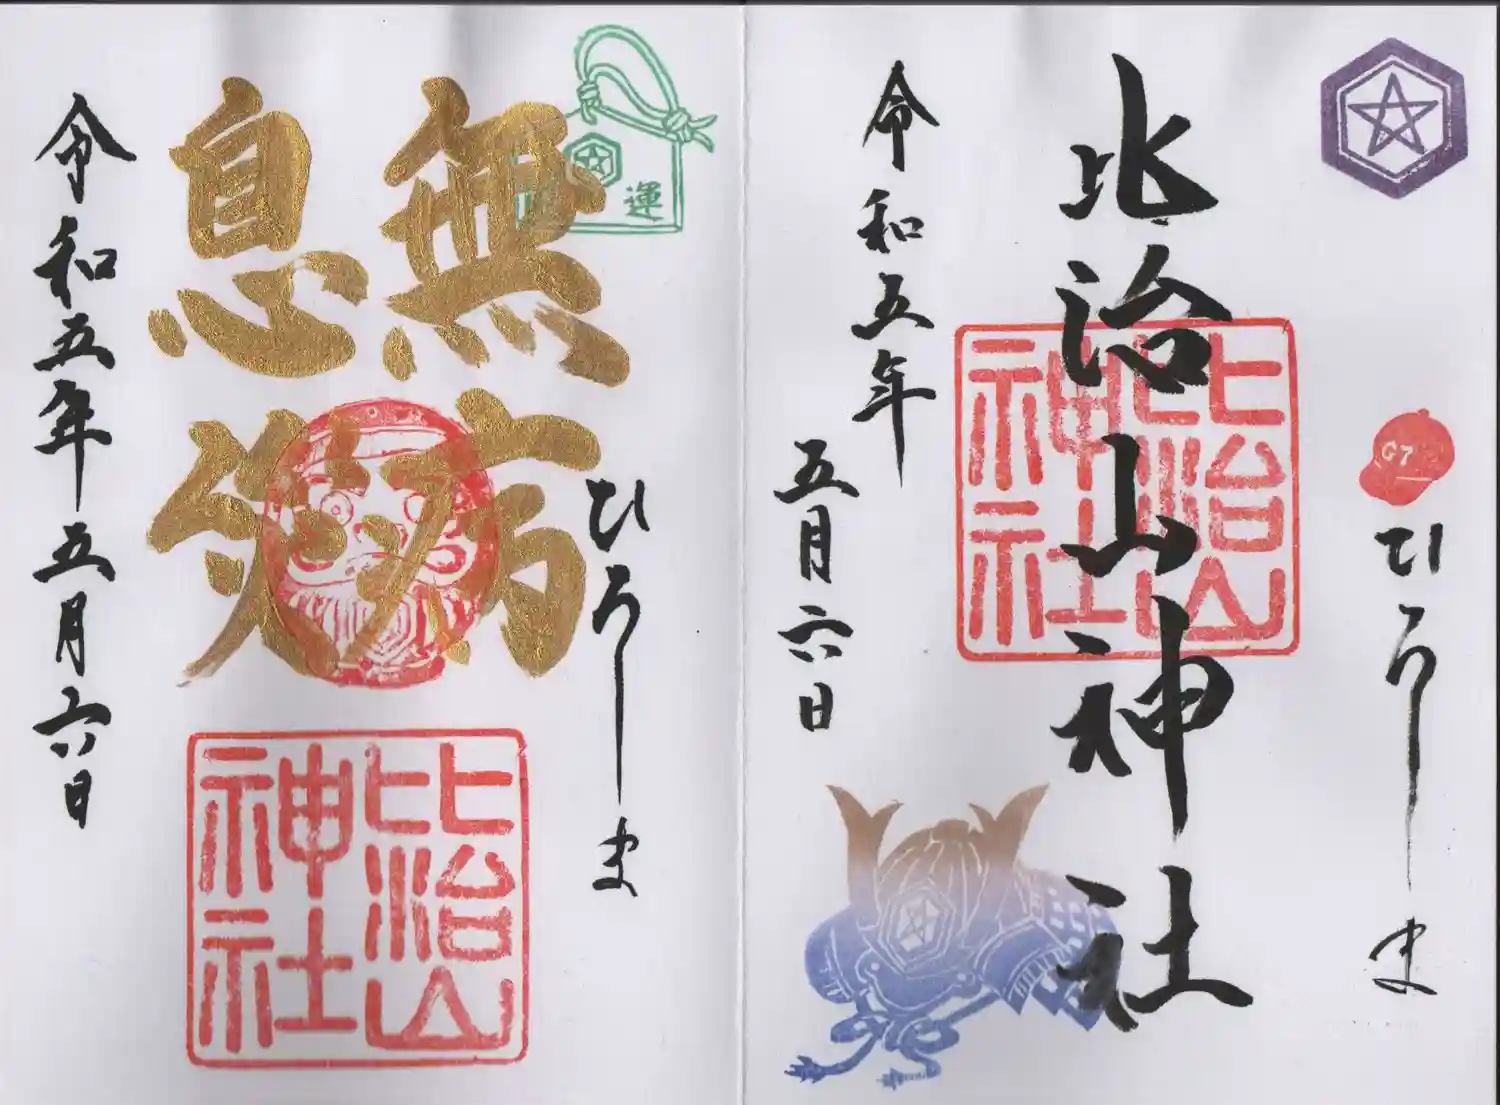 G7
ひろしま
比治山神社
比治山
神社
令和五年
五月六日
運
ひろしま
無病
息災
比治山
神社
令和五年五月六日